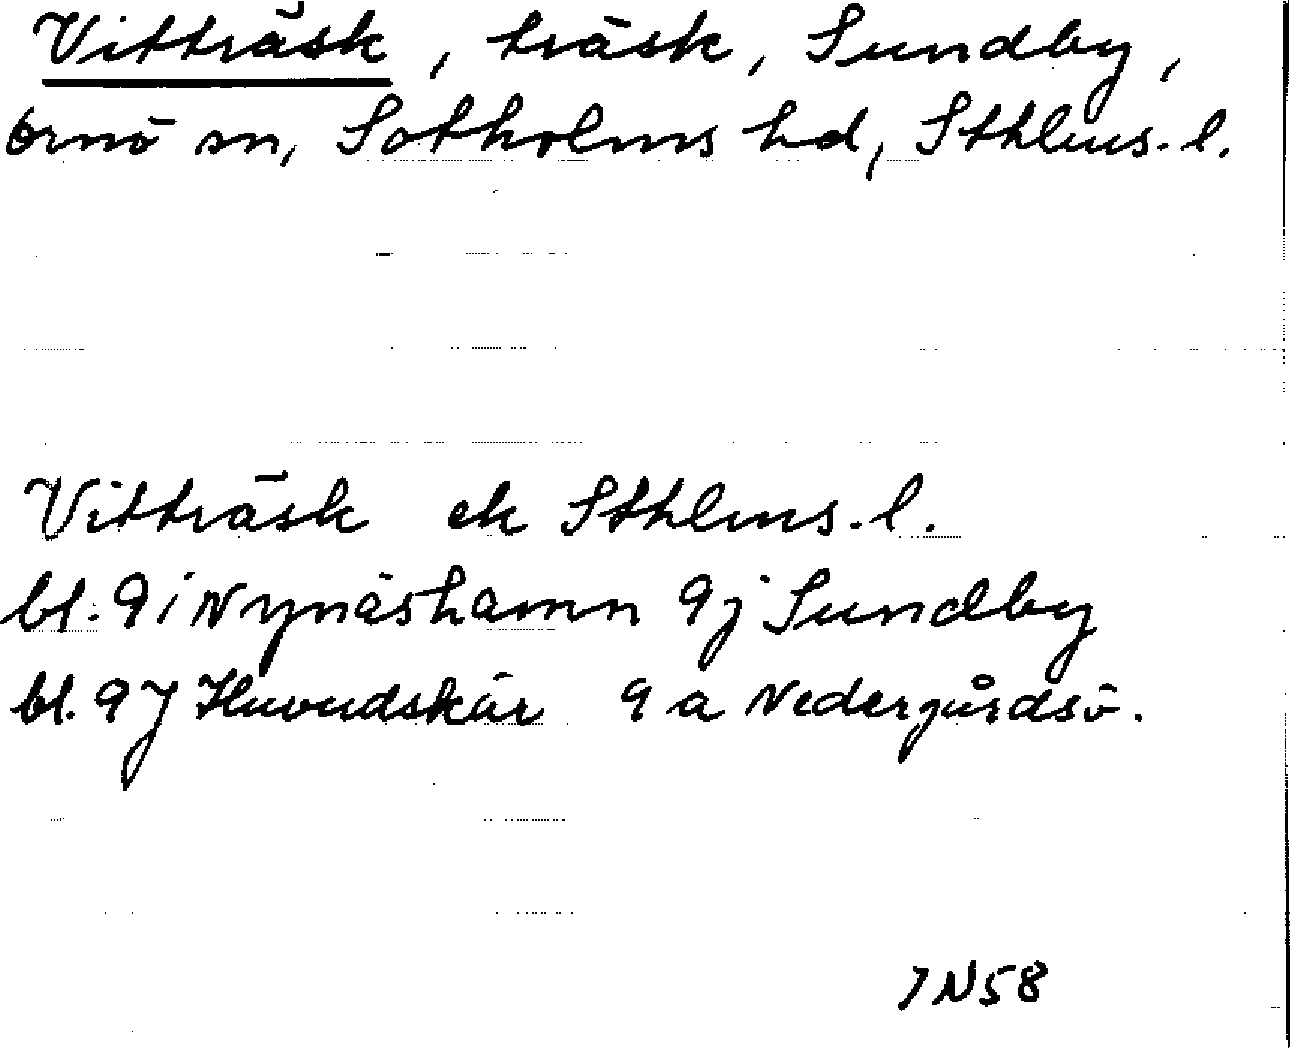 Vitträsk, träsk, Sundby,
Ornö sn, Sotholms hd, Sthlms. l.
Vitträsk ek Sthlms. l.
bl. 9 i Nynäshamn 9j Sundby
bl. 9 J Huvudskär 9 a Nedergårdsö.
IN58